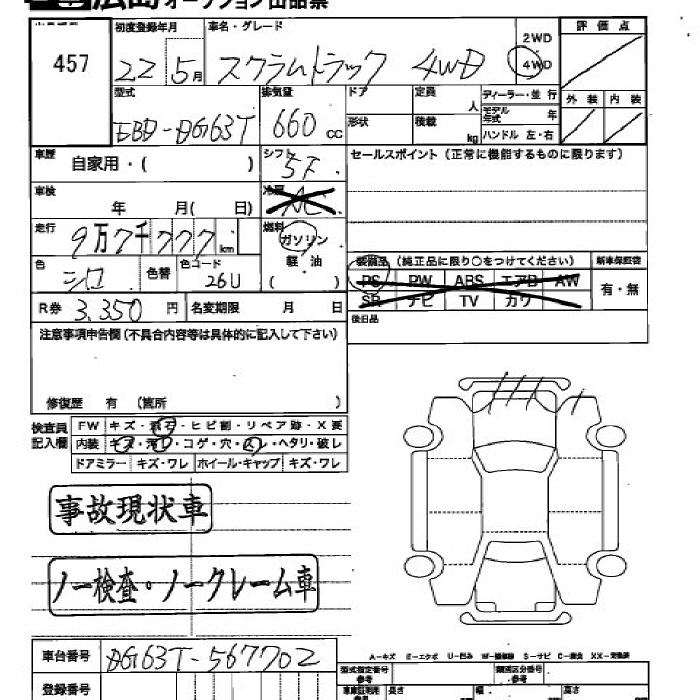 広島 オークション 出品票
457
初度登録年月
22年5月
車名・グレード
スクラムトラック 4WD
2WD
4WD
評価点
外装 内装
型式
EBD-DG63T
排気量
660 cc
ドア
形状
定員 人
積載 kg
ディーラー・並行
モデル年式 年
ハンドル 左・右
車歴
自家用・( )
シフト
5F
セールスポイント (正常に機能するものに限ります)
車検
年 月( 日)
冷房
AC
走行
9万7千777km
燃料
ガソリン
軽油
( )
色
シロ
色替
色コード
26U
装備品 (純正品に限り○をつけてください)
PS PW ABS エアB AW
SR ナビ TV カワ
新車保証書
有・無
R券 3,350円
名変期限 月 日
後日品
注意事項申告欄(不具合内容等は具体的に記入して下さい)
修復歴 有 (箇所 )
検査員記入欄
FW キズ・飛石・ヒビ割・リペア跡・X要
内装 キズ・汚れ・コゲ・穴・スレ・ヘタリ・破レ
ドアミラー キズ・ワレ ホイール・キャップ キズ・ワレ
事故現状車
ノー検査・ノークレーム車
A-キズ E-エクボ U-凹み W-補修跡 S-サビ C-腐食 XX-交換済
車台番号 DG63T-567702
登録番号
型式指定番号
参考
類別区分番号
参考
長さ
幅
高さ